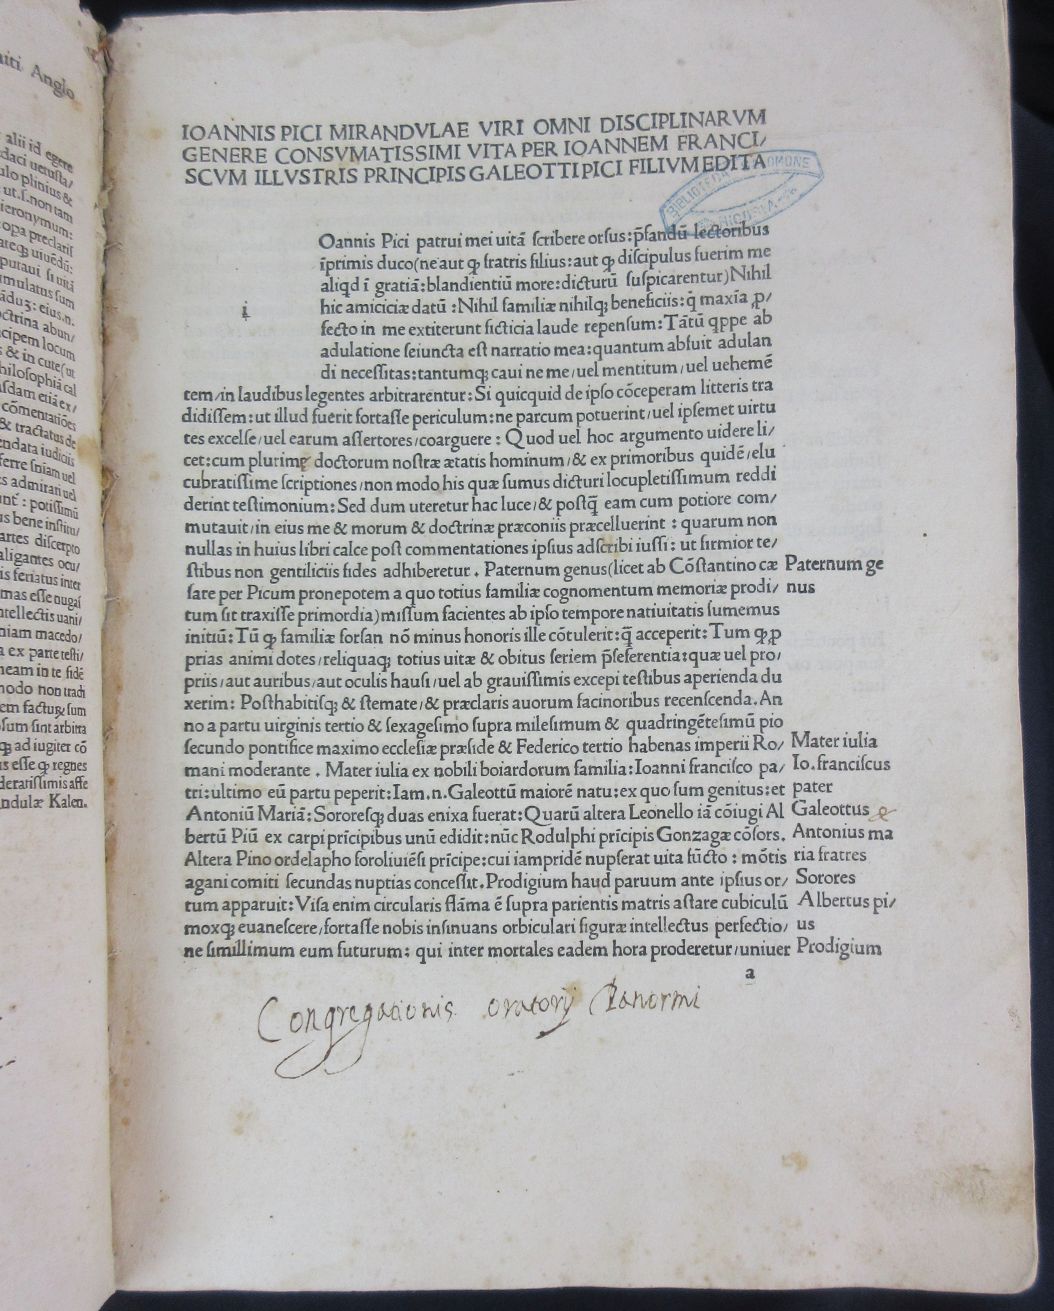 aiti Anglo
alii id egere
daci uetusta/
ulo plinius &
ut.s.non tam
ieronymum:
opa preclaris
ateq; uiuēdū:
putaui si uitā
mulatus sum
ādūʒ: eius.n.
octrina abun/
cipem locum
s & in cute(ut
hilosophiā cal
usdam etiā ex/
cōmentariōes
& tractatus de
endata iudiciis
ferre sniam uel
es admirari uel
unt: potissimū
us bene institu/
artes discerpto
aligantes ocu/
is feriatus inter
mas esse nugas
ntellectis uani/
niam macedo/
a ex parte testi/
neam in te fidē
nodo non tradi
em factuƺ sum
osum sint arbitra
q; ad iugiter cō
is esse q; regnes
deratissimis affe
andulæ Kalen.
IOANNIS PICI MIRANDVLAE VIRI OMNI DISCIPLINARVM
GENERE CONSVMATISSIMI VITA PER IOANNEM FRANCI/
SCVM ILLVSTRIS PRINCIPIS GALEOTTI PICI FILIVM EDITA
BIBLIOTECA
NICOSIA
i
Oannis Pici patrui mei uitā scribere orsus:p̄fandū lectoribus
īprimis duco(ne aut ꝙ fratris filius:aut ꝙ discipulus fuerim me
aliqd ī gratiā:blandientiū more:dicturū suspicarentur)Nihil
hic amiciciæ datū :Nihil familiæ nihilq; beneficiis:q̄ maxīa ꝓ/
fecto in me extiterunt ficticia laude repensum:Tātū qppe ab
adulatione seiuncta est narratio mea:quantum absuit adulan
di necessitas:tantumq; caui ne me/uel mentitum/uel uehemē
tem/in laudibus legentes arbitrarentur:Si quicquid de ipso cōceperam litteris tra
didissem:ut illud fuerit fortasse periculum:ne parcum potuerint/uel ipsemet uirtu
tes excelse/uel earum assertores/coarguere : Quod uel hoc argumento uidere li/
cet:cum plurimę doctorum nostræ ætatis hominum/& ex primoribus quidē/elu
cubratissime scriptiones/non modo his quæ sumus dicturi locupletissimum reddi
derint testimonium:Sed dum uteretur hac luce/& postq̄ eam cum potiore com/
mutauit/in eius me & morum & doctrinæ præconiis præcelluerint : quarum non
nullas in huius libri calce post commentationes ipsius adscribi iussi: ut firmior te/
stibus non gentiliciis fides adhiberetur . Paternum genus(licet ab Cōstantino cæ
sare per Picum pronepotem a quo totius familiæ cognomentum memoriæ prodi/
tum sit traxisse primordia)missum facientes ab ipso tempore natiuitatis sumemus
initiū:Tū ꝙ familiæ forsan nō minus honoris ille cōtulerit:q̄ acceperit:Tum ꝙ ꝓ
prias animi dotes/reliquaq; totius uitæ & obitus seriem p̄seferentia:quæ uel pro/
priis/aut auribus/aut oculis hausi/uel ab grauissimis excepi testibus aperienda du
xerim: Posthabitisq; & stemate/& præclaris auorum facinoribus recenscenda.An
no a partu uirginis tertio & sexagesimo supra milesimum & quadringētesimū pio
secundo pontifice maximo ecclesiæ præside & Federico tertio habenas imperii Ro/
mani moderante . Mater iulia ex nobili boiardorum familia:Ioanni francisco pa/
tri:ultimo eū partu peperit:Iam.n.Galeottū maiorē natu:ex quo sum genitus:et
Antoniū Mariā:Sororesq; duas enixa fuerat:Quarū altera Leonello iā cōiugi Al
bertū Piū ex carpi prīcipibus unū edidit:nūc Rodulphi prīcipis Gonzagæ cōsors.
Altera Pino ordelapho foroliuiēsi prīcipe:cui iampridē nupserat uita fūcto : mōtis
agani comiti secundas nuptias concessit.Prodigium haud paruum ante ipsius or/
tum apparuit:Visa enim circularis flāma ē supra parientis matris astare cubiculū
moxq; euanescere/fortasse nobis insinuans orbiculari figuræ intellectus perfectio/
ne simillimum eum futurum: qui inter mortales eadem hora proderetur/uniuer
Paternum ge
nus
Mater iulia
Io. franciscus
pater
Galeottus &
Antonius ma
ria fratres
Sorores
Albertus pi/
us
Prodigium
a
Congregationis oratorij Panormi